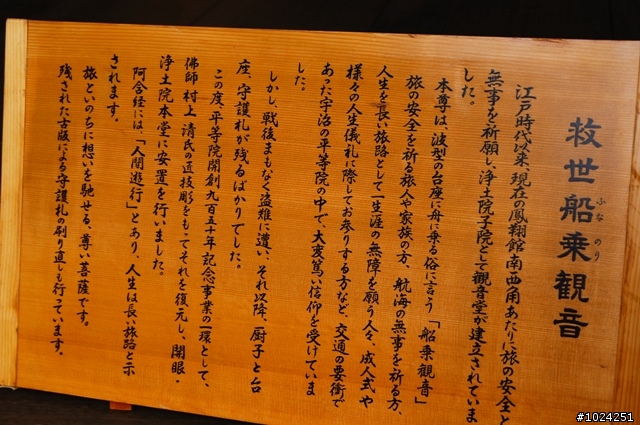 救世船乗観音
ふな のり
江戸時代以来、現在の鳳翔館南西角あたりに旅の安全と
無事を祈願し、浄土院子院として観音堂が建立されていま
した。
本尊は、波型の台座に舟に乗る俗に言う「船乗観音」
旅の安全を祈る旅人や家族の方、航海の無事を祈る方、
人生を長い旅路として一生涯の無障を願う人々、成人式や
様々の人生儀礼に際してお参りする方など、交通の要衝で
あった宇治の平等院の中で、大変篤い信仰を受けていま
した。
しかし、戦後まもなく盗難に遭い、それ以降、厨子と台
座、守護札が残るばかりでした。
この度、平等院開創九百五十年記念事業の一環として、
佛師村上清氏の匠技彫をもってそれを復元し、開眼・
浄土院本堂に安置を行いました。
阿含経には、「人間遊行」とあり、人生は長い旅路と示
されます。
旅といのちに想いを馳せる、尊い菩薩です。
残された古版による守護札の刷り直しも行っています。
#1024251